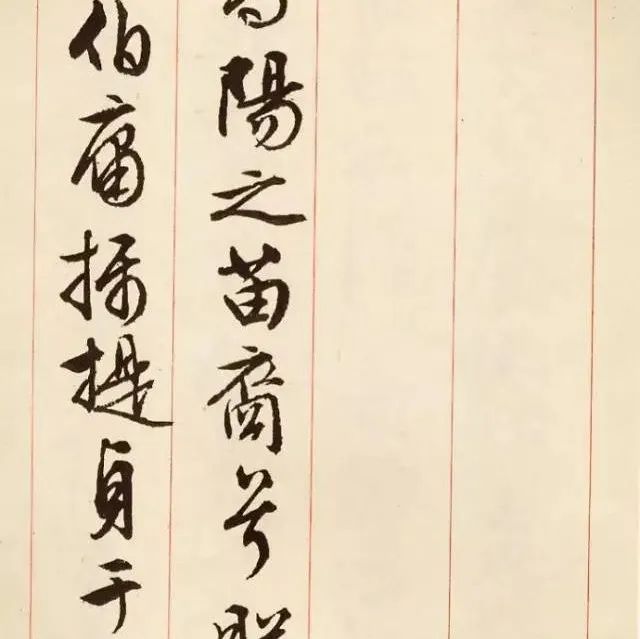 陽之苗裔兮
伯庸攝提貞于